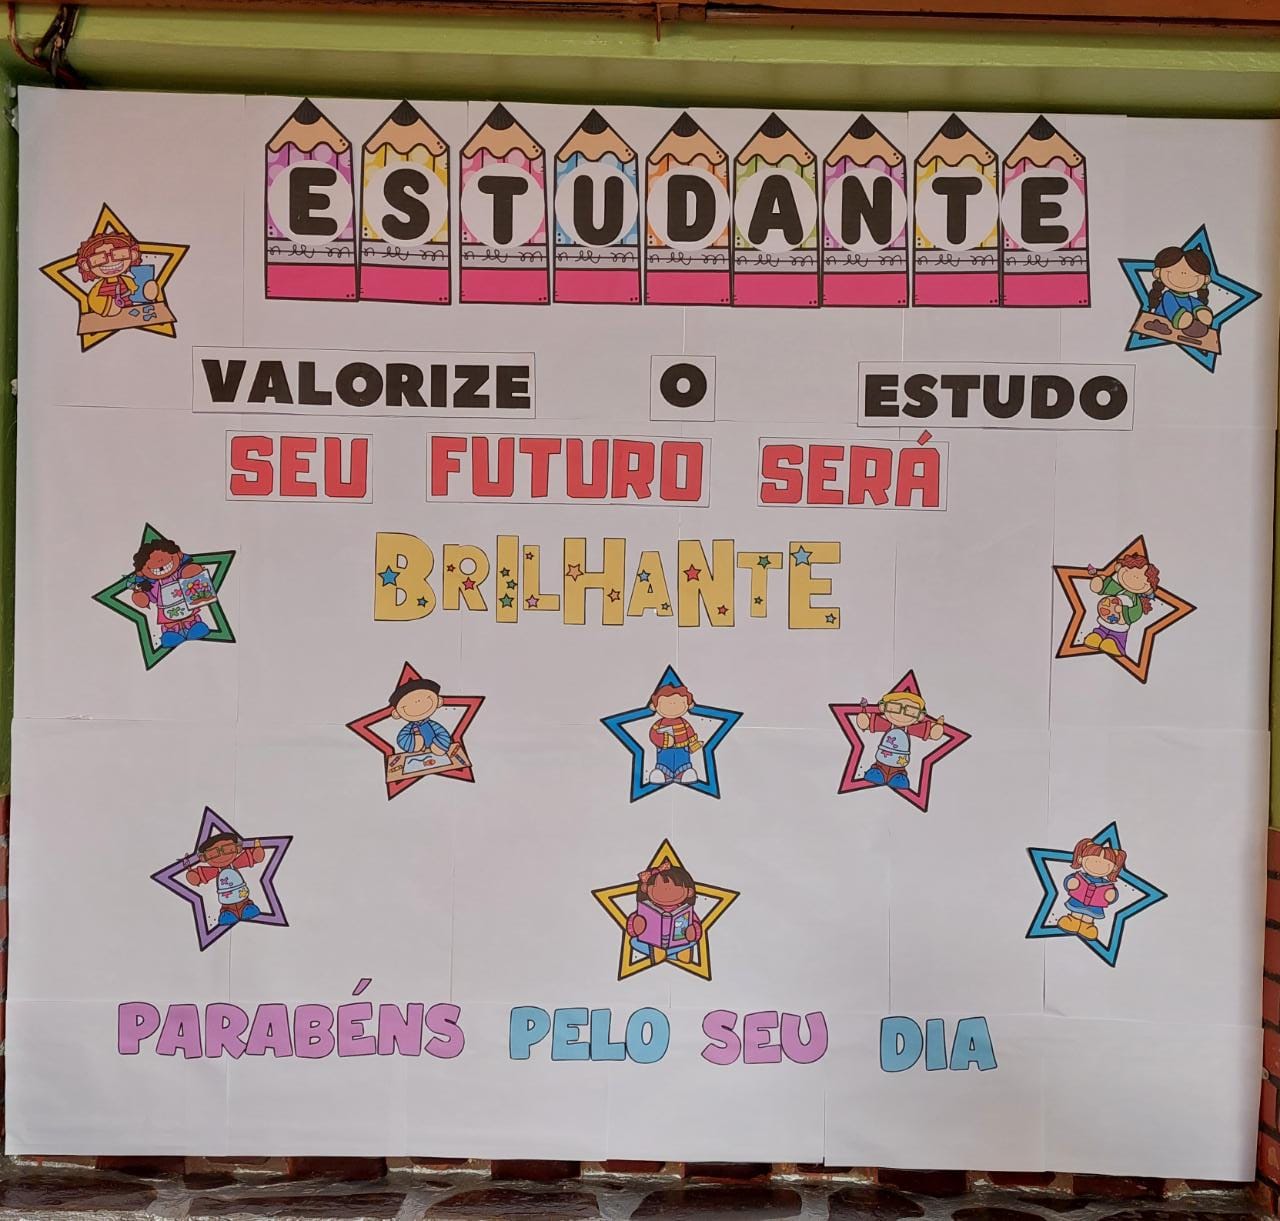 ESTUDANTE
VALORIZE O ESTUDO
SEU FUTURO SERÁ
BRILHANTE
PARABÉNS PELO SEU DIA